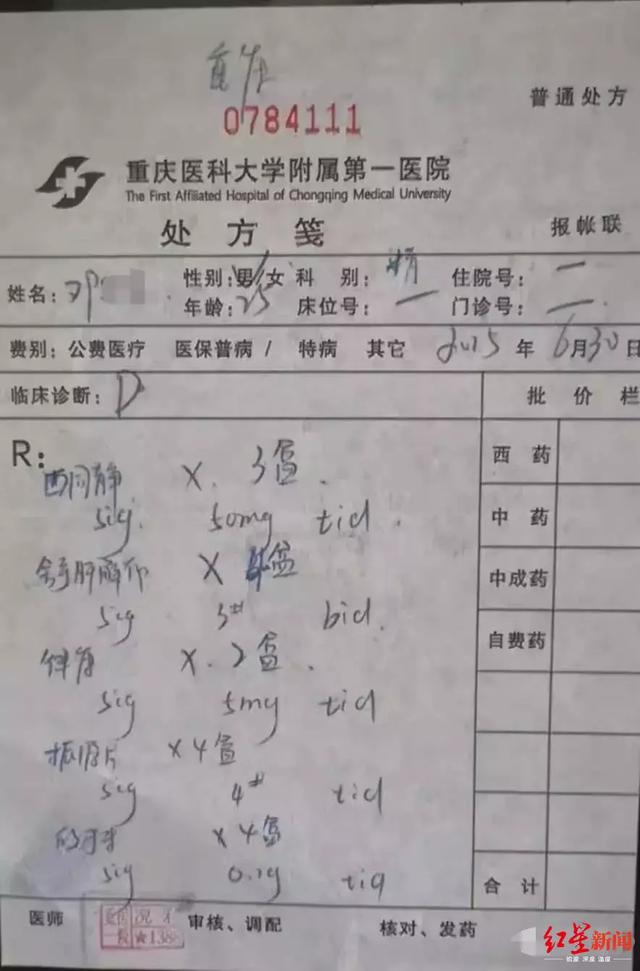 0784111
普通处方
重庆医科大学附属第一医院
The First Affiliated Hospital of Chongqing Medical University
处方笺
报帐联
姓名:邓 性别:男/女 科别: 住院号:一
年龄:25 床位号:一 门诊号:一
费别:公费医疗 医保普病/ 特病 其它 2015年6月30日
临床诊断:D
批价栏
R:
西同静 X. 3盒
sig. 50mg tid.
西药
中药
舒肝解郁 X 4盒
sig 3# bid.
中成药
自费药
X. 2盒.
sig 5mg tid
X4盒
sig 4# tid
X4盒
sig tid
合计
医师
★138
审核、调配
核对、发药
红星新闻